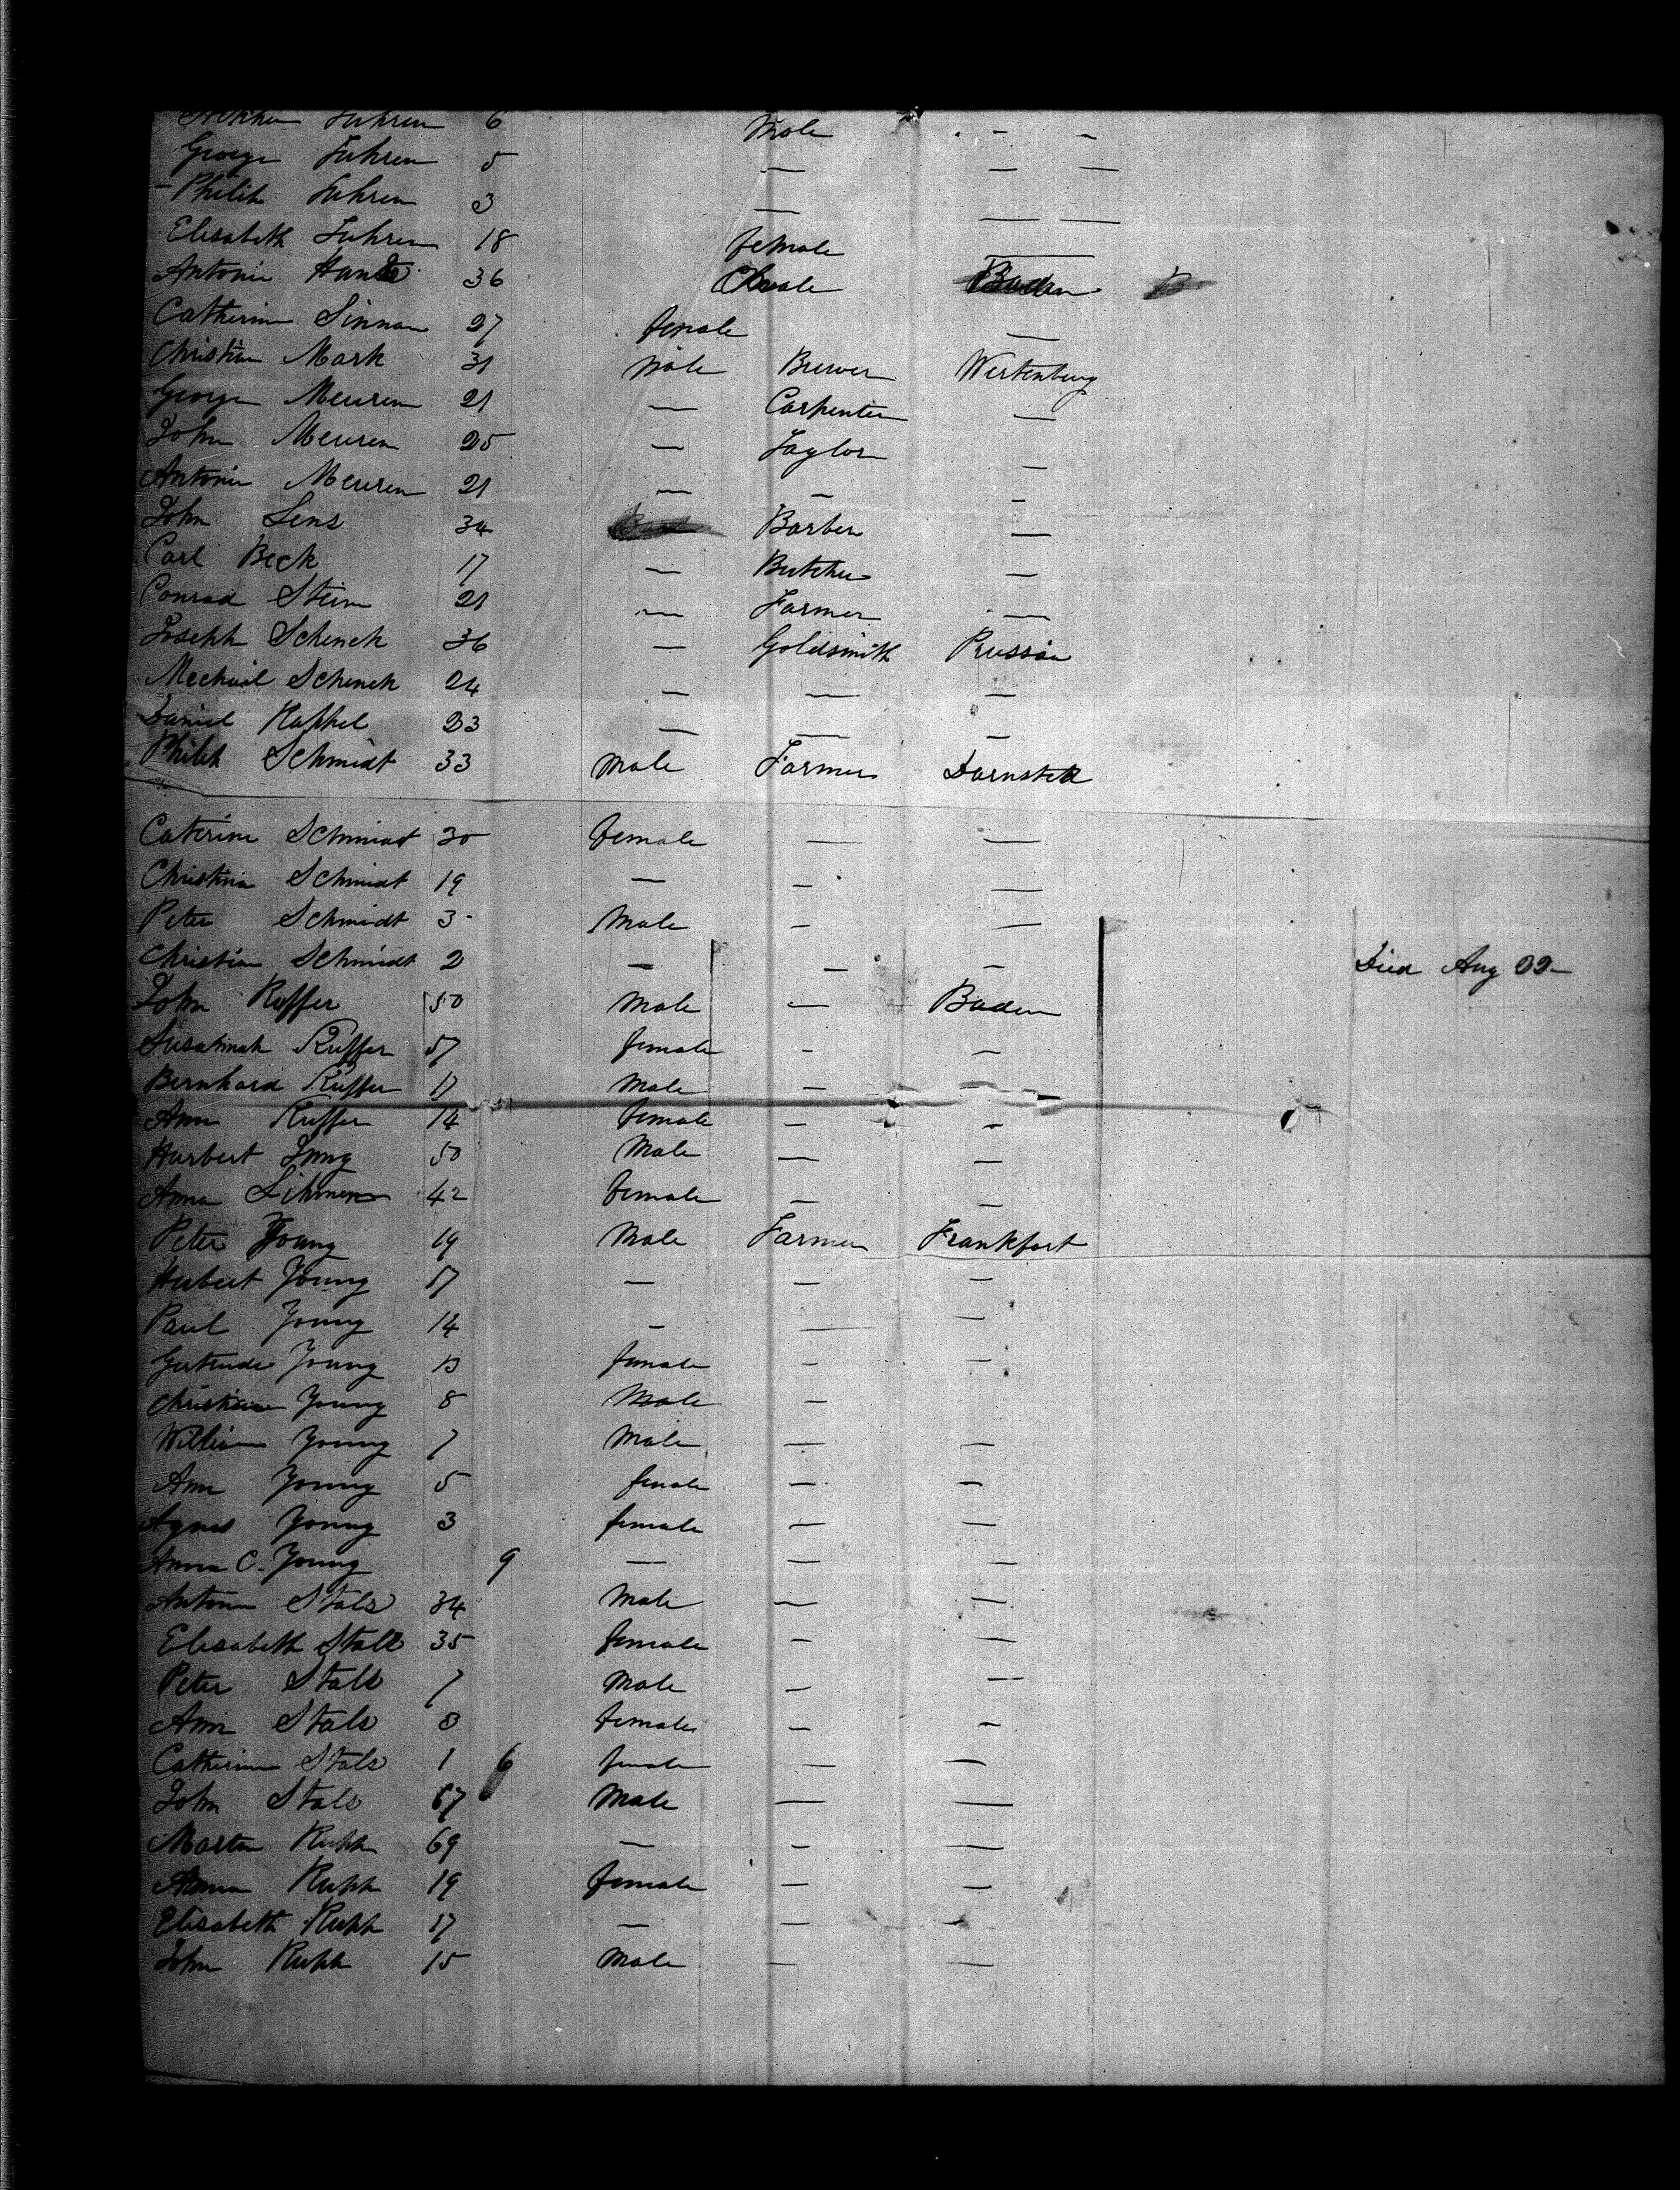 Fuhren 6 Male - -
George Fuhren 5 — — —
Philip Fuhren 3 — — —
Elisabeth Fuhren 18 female —
Antonie 36 Male Baden
Catherine Sinnan 27 female —
Christian Mark 31 Male Brewer Wertenburg
George Meuren 21 — Carpenter —
John Meuren 25 — Taylor —
Antonie Meuren 21 — - -
John Lens 34 Barber —
Carl Beck 17 — Butcher —
Conrad Stein 21 — Farmer —
Joseph Schenck 36 — Goldsmith Prussia
Mechail Schenck 24 — — —
Daniel Kappel 23 — — —
Philip Schmidt 33 Male Farmer Darnstett
Caterine Schmidt 30 female — —
Christina Schmidt 19 — - —
Peter Schmidt 3 Male - —
Christian Schmidt 2 — - — Died Aug 22
John Ruffer 50 Male — Baden
Susannah Ruffer 57 female - —
Bernhard Ruffer 17 Male —
Ann Ruffer 14 female — -
Harbert Jung 50 Male — —
Anna 42 female — —
Peter Young 19 Male Farmer Frankfort
Herbert Young 17 — — —
Paul Young 14 — — —
Gertrude Young 13 female - —
Christian Young 8 Male —
William Young 7 Male — —
Ann Young 5 female — —
Agnes Young 3 female — —
Anna C. Young 9 — — —
Antone Stals 34 Male — —
Elisabeth Stals 35 female - —
Peter Stals 7 Male — —
Ann Stals 3 female — —
Catherine Stals 1 6 female — —
John Stals 67 Male — —
Martin Rupp 69 — - —
Anna Rupp 19 female — —
Elisabeth Rupp 17 — — -
John Rupp 15 Male — —